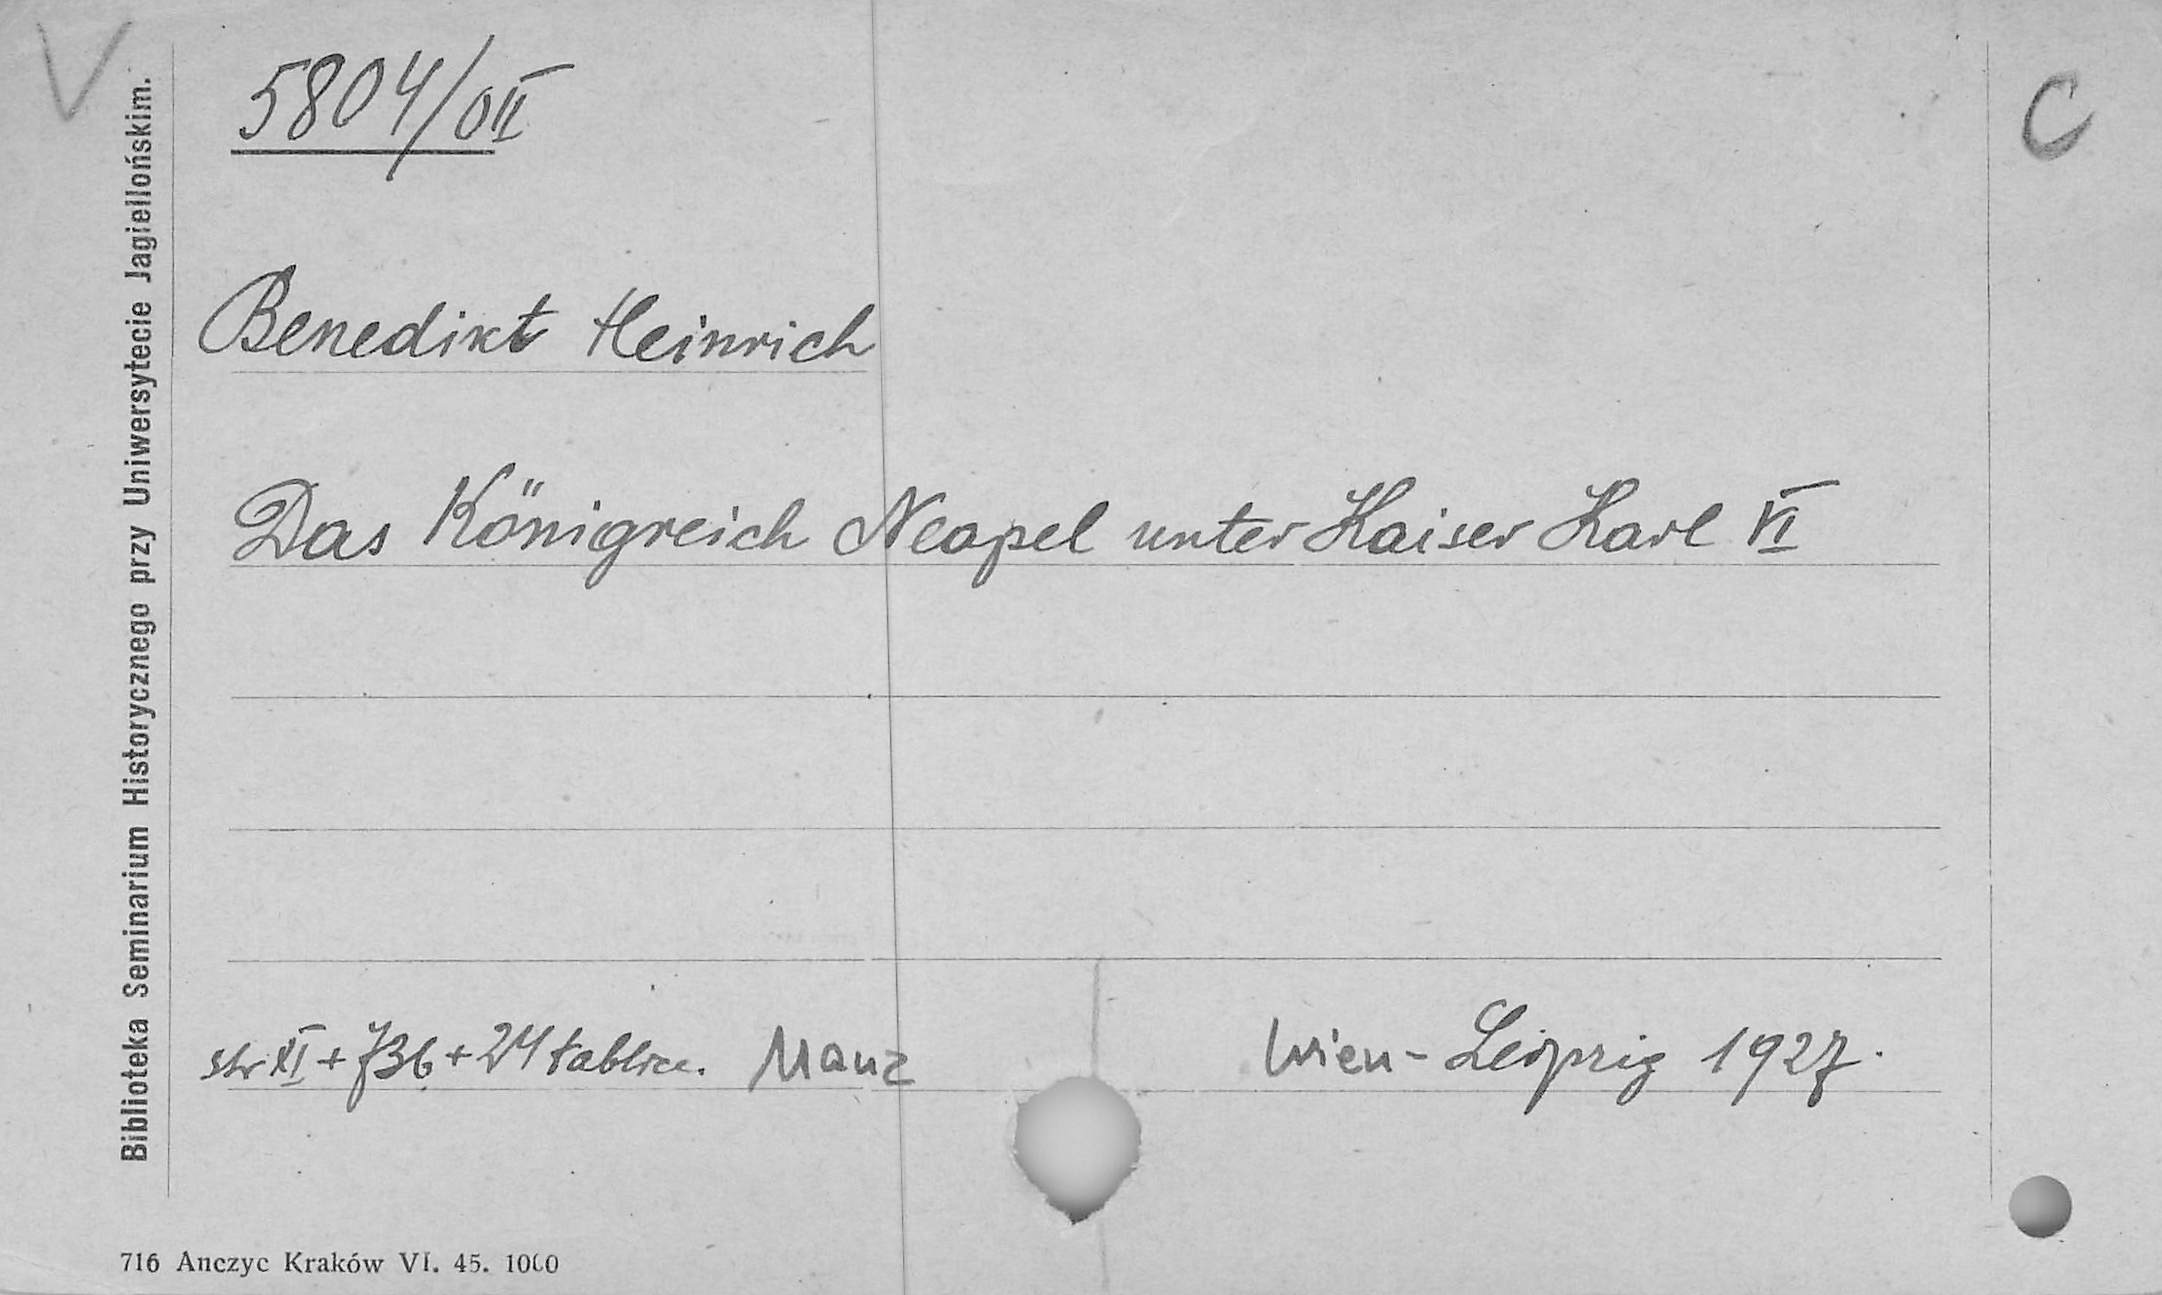 V
C
5804/OII
Benedikt Heinrich
Das Königreich Neapel unter Kaiser Karl VI
str XI + 736 + 24 tablice. Manz Wien - Leipzig 1927.
Biblioteka Seminarium Historycznego przy Uniwersytecie Jagiellońskim.
716 Anczyc Kraków VI. 45. 1000